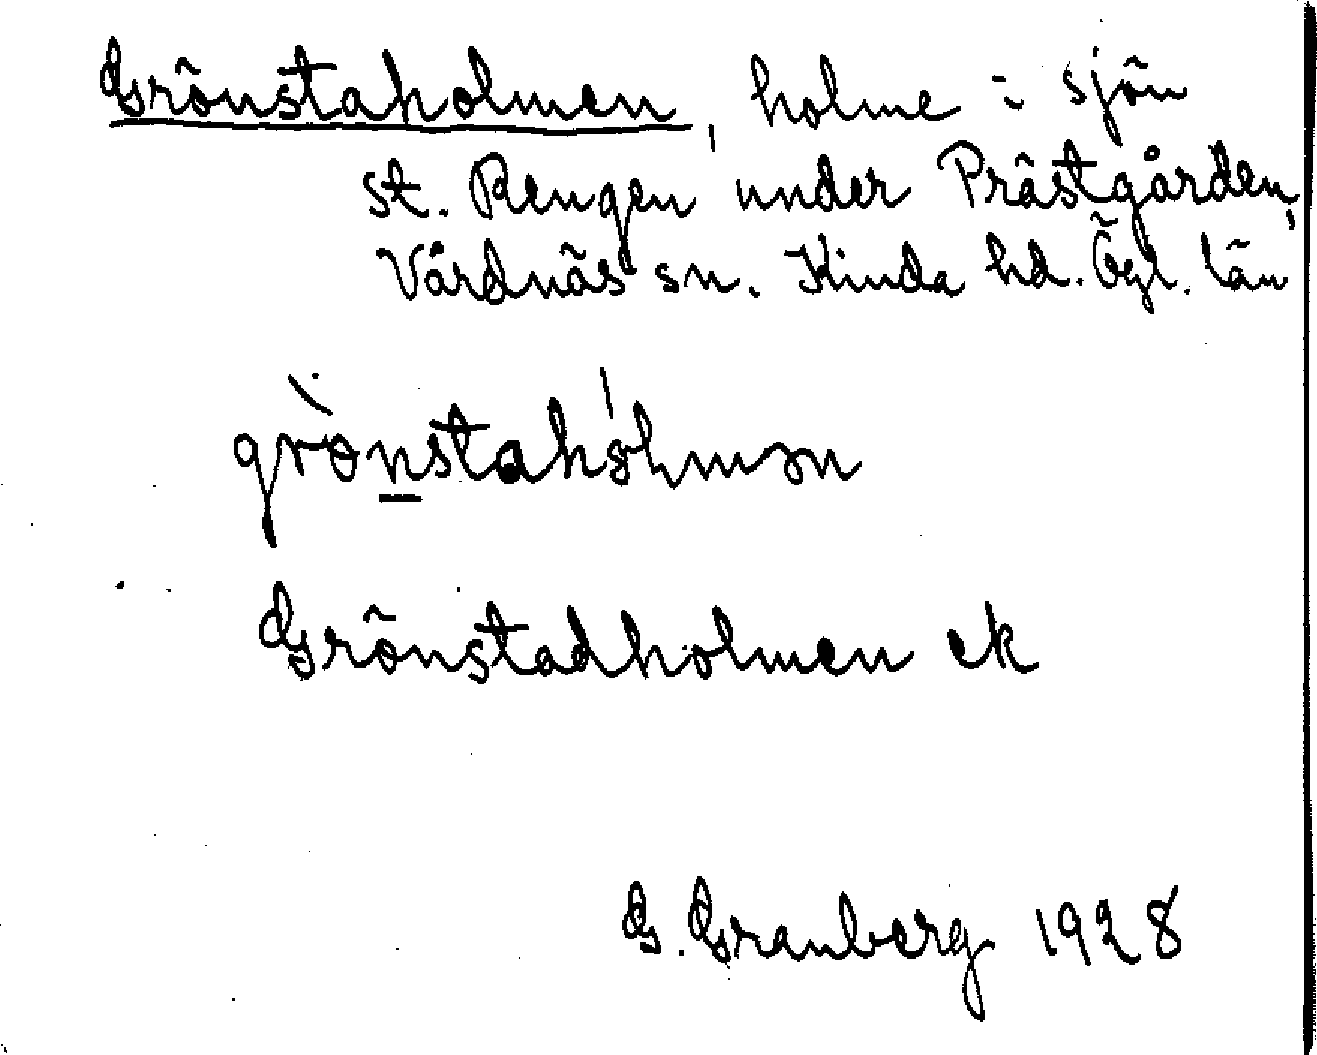 Grönstaholmen, holme i sjön
st. Rengen under Prästgården,
Vårdnäs sn. Kinda hd. Ögl. län
Grönstadholmen ek
G. Granberg 1928